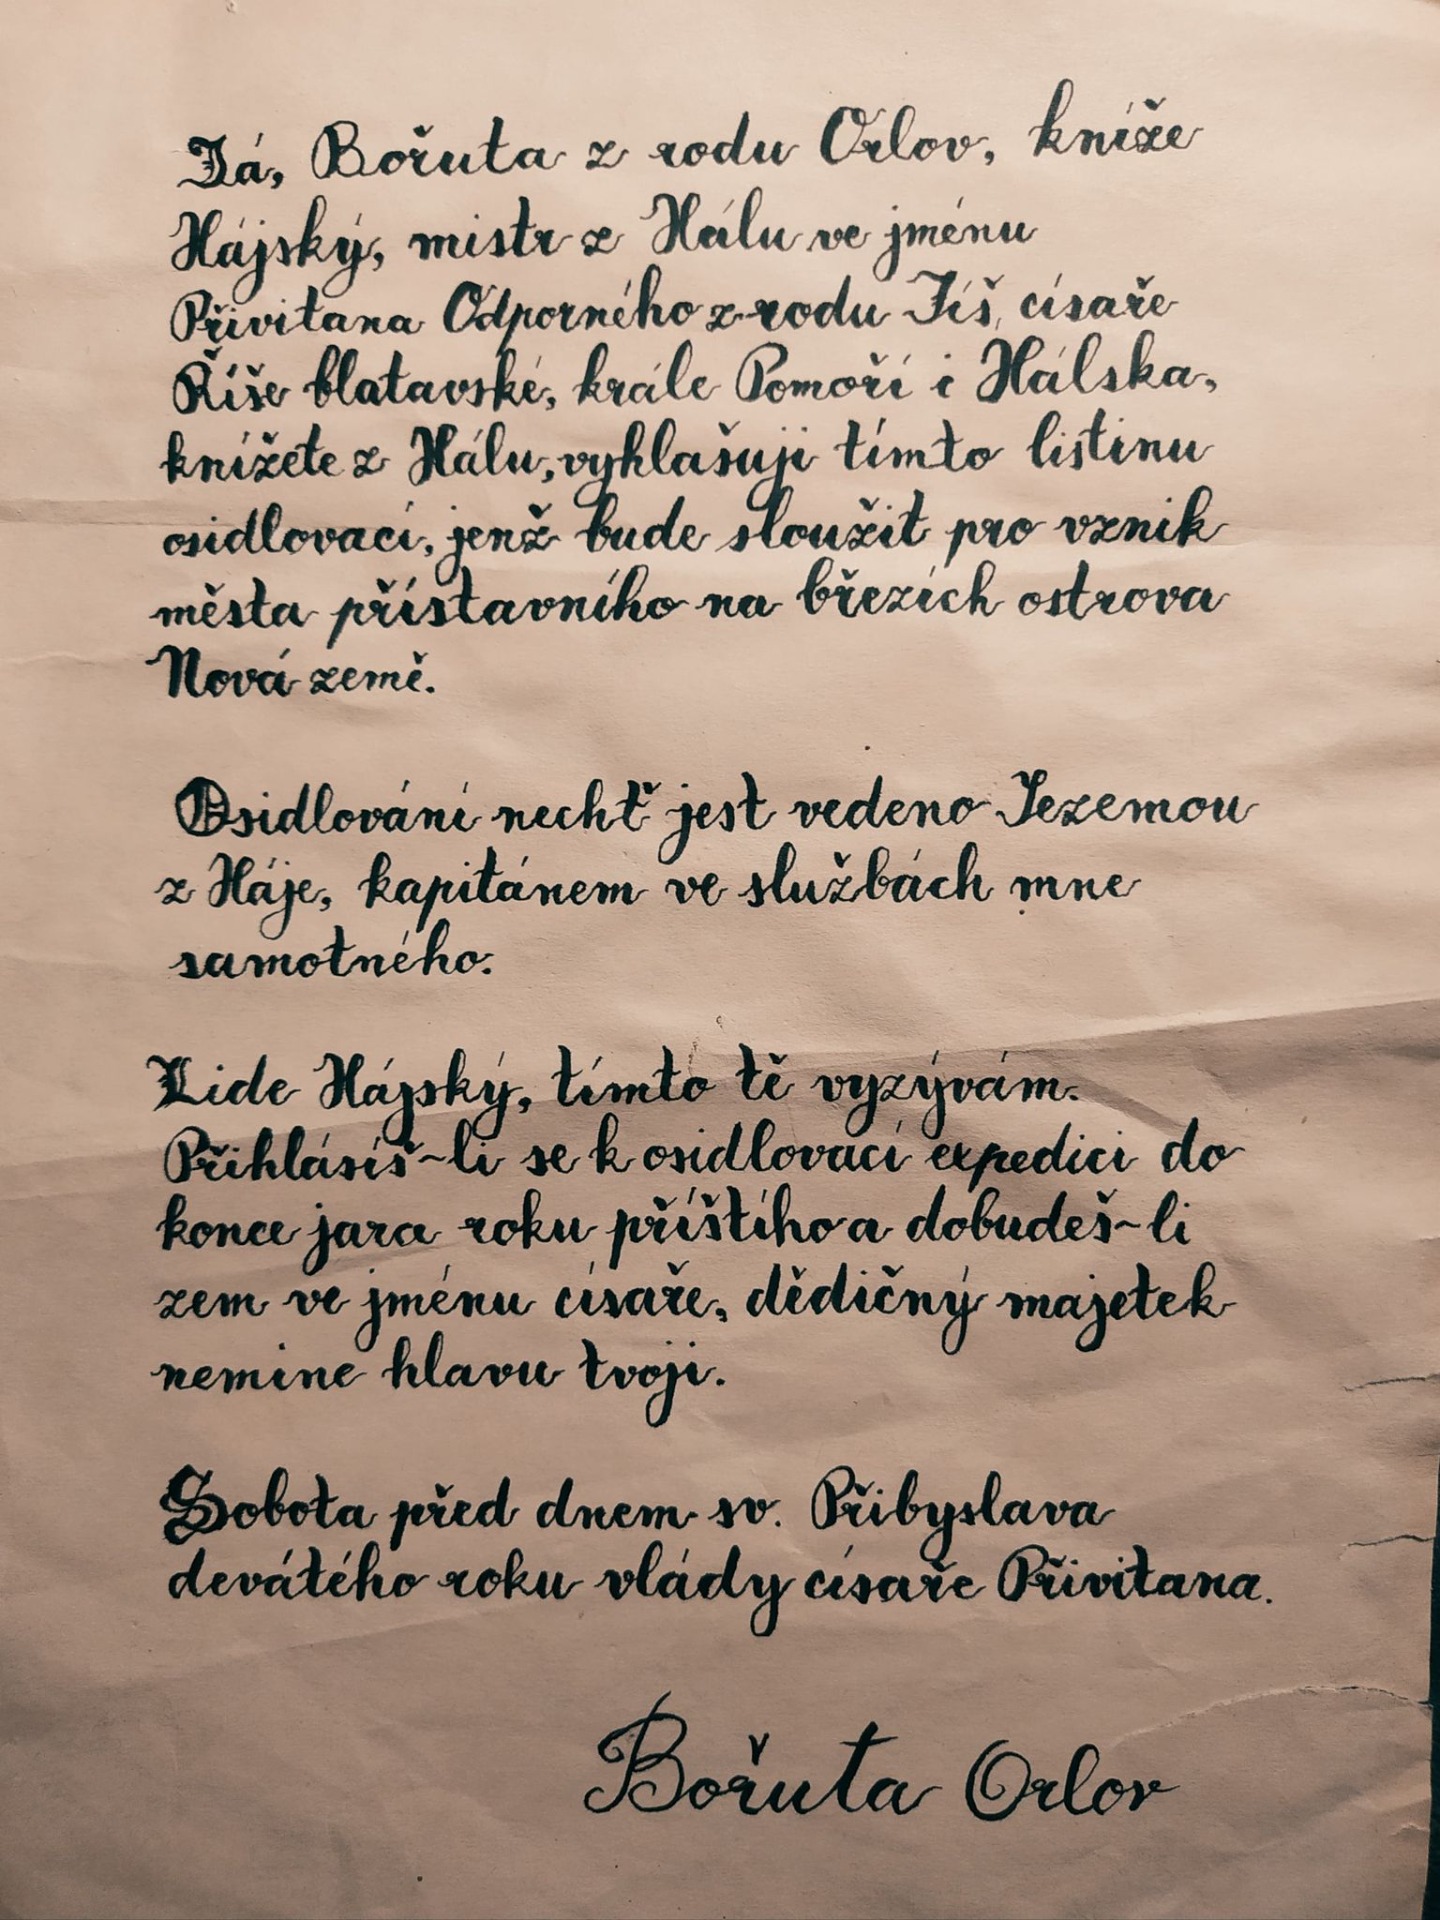 Já, Bořuta z rodu Orlov, kníže
Hájský, mistr z Hálu ve jménu
Přivitana Odporného z rodu Jíš, císaře
Říše blatavské, krále Pomoří i Hálska,
knížete z Hálu, vyhlašuji tímto listinu
osidlovací, jenž bude sloužit pro vznik
města přístavního na březích ostrova
Nová země.
Osidlování nechť jest vedeno Jezemou
z Háje, kapitánem ve službách mne
samotného.
Lide Hájský, tímto tě vyzývám.
Přihlásíš-li se k osidlovací expedici do
konce jara roku příštího a dobudeš-li
zem ve jménu císaře, dědičný majetek
nemine hlavu tvoji.
Sobota před dnem sv. Přibyslava
devátého roku vlády císaře Přivitana.
Bořuta Orlov